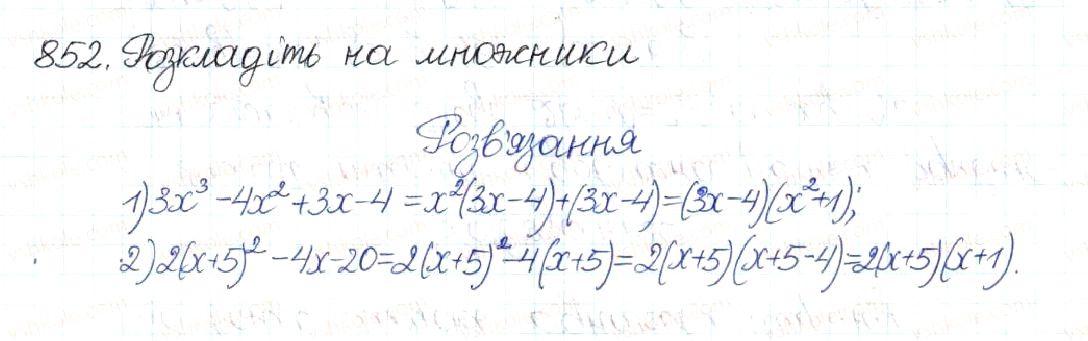 852. Розкладіть на множники
Розв'язання
1) 3x³ - 4x² + 3x - 4 = x²(3x - 4) + (3x - 4) = (3x - 4)(x² + 1);
2) 2(x+5)² - 4x - 20 = 2(x+5)² - 4(x+5) = 2(x+5)(x+5-4) = 2(x+5)(x+1).